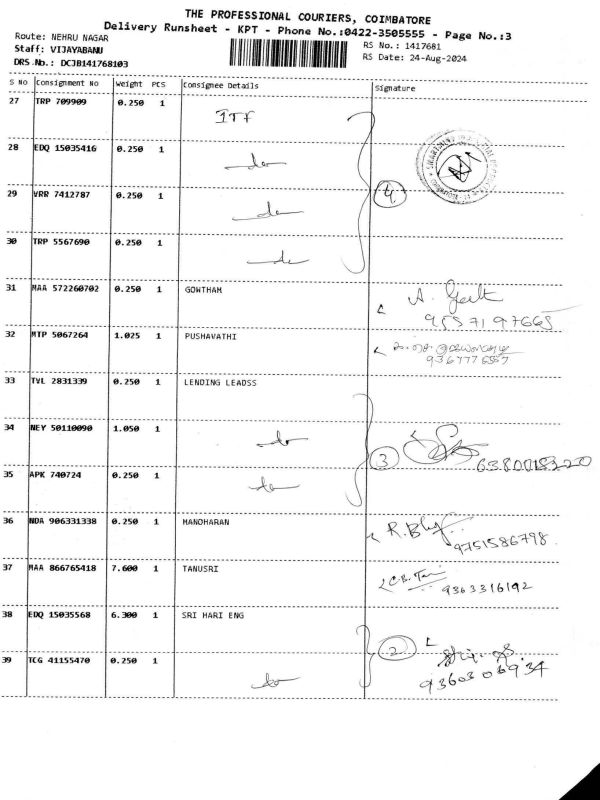 THE PROFESSIONAL COURIERS, COIMBATORE
Delivery Runsheet - KPT - Phone No.:0422-3505555 - Page No.:3
Route: NEHRU NAGAR
RS No.: 1417681
Staff: VIJAYABANU
RS Date: 24-Aug-2024
DRS No.: DCJB141768103
S NO Consignment No Weight PCS Consignee Details Signature
27 TRP 709909 0.250 1 ITF
28 EDQ 15035416 0.250 1 do
29 VRR 7412787 0.250 1 do 4.
30 TRP 5567690 0.250 1 do
31 MAA 572260702 0.250 1 GOWTHAM A.
32 MTP 5067264 1.025 1 PUSHAVATHI
33 TVL 2831339 0.250 1 LENDING LEADSS
34 NEY 50110090 1.050 1 do 3
35 APK 740724 0.250 1 do
36 NDA 906331338 0.250 1 MANOHARAN R.
9751586798
37 MAA 866765418 7.600 1 TANUSRI
9363316192
38 EDQ 15035568 6.300 1 SRI HARI ENG 2
39 TCG 41155470 0.250 1 do
9360306934